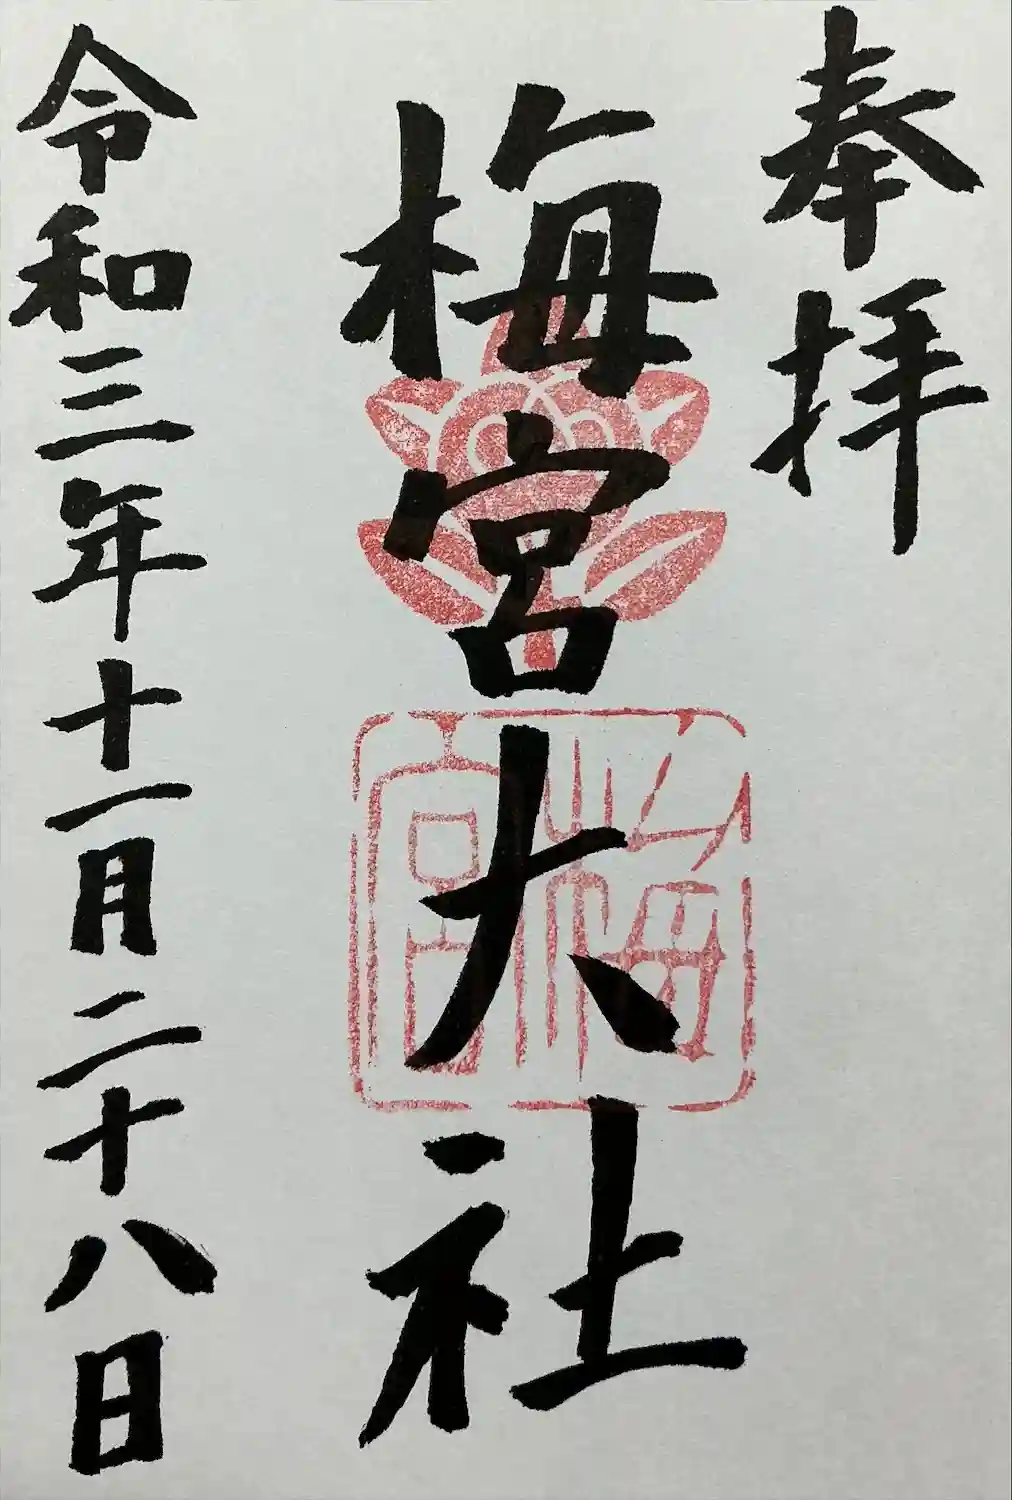 奉拝
梅宮大社
令和三年十一月二十八日